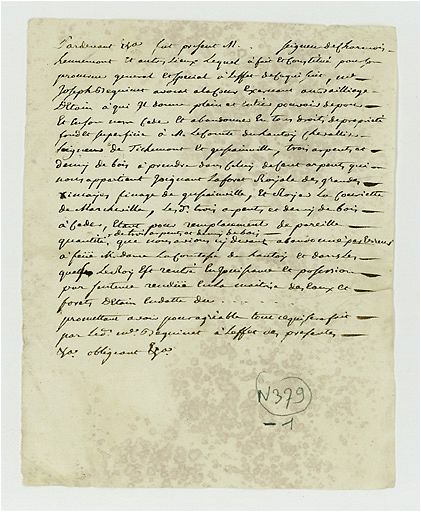 Pardevant &ca fut present M. . Seigneur de Charmois
hennemont et autres lieux Lequel a fait et constitué pour son
procureur general et special a l'effet de ce qui suit, me
Joseph Brequinet avocat ez cour exercant au Bailliage
D'Etain a qui Il donne plein et entier pouvoir de pour
et en son nom ceder et abandonner en tous droits de proprieté
fond et superficie a M. Le Comte du hautoy chevallier
Seigneur de Tichemont et gussainville, trois arpents et
demy de bois a prendre dans celuy de cent arpents, qui
nous appartient joignant La forest Royale des grandes
finage de gussainville, et
de Marcheville, Lesd. trois arpents et demy de bois
a Ceder, Etant pour remplacement de pareille
de trois arpents et demy de bois
quantité, que nous avions cy devant abandonné par Erreur
a feüe M. dame La Comtesse du hautoy et dans les
quels Le Roy Est rentré en Jouissance et possession
par sentence rendüe en la maitrise des Eaux et
forets D'Etain en datte du
promettant avoir pour agréable tout ce qui sera fait
par led. me Brequinet a l'effet des presentes
&ca obligeant &ca
N379
-1